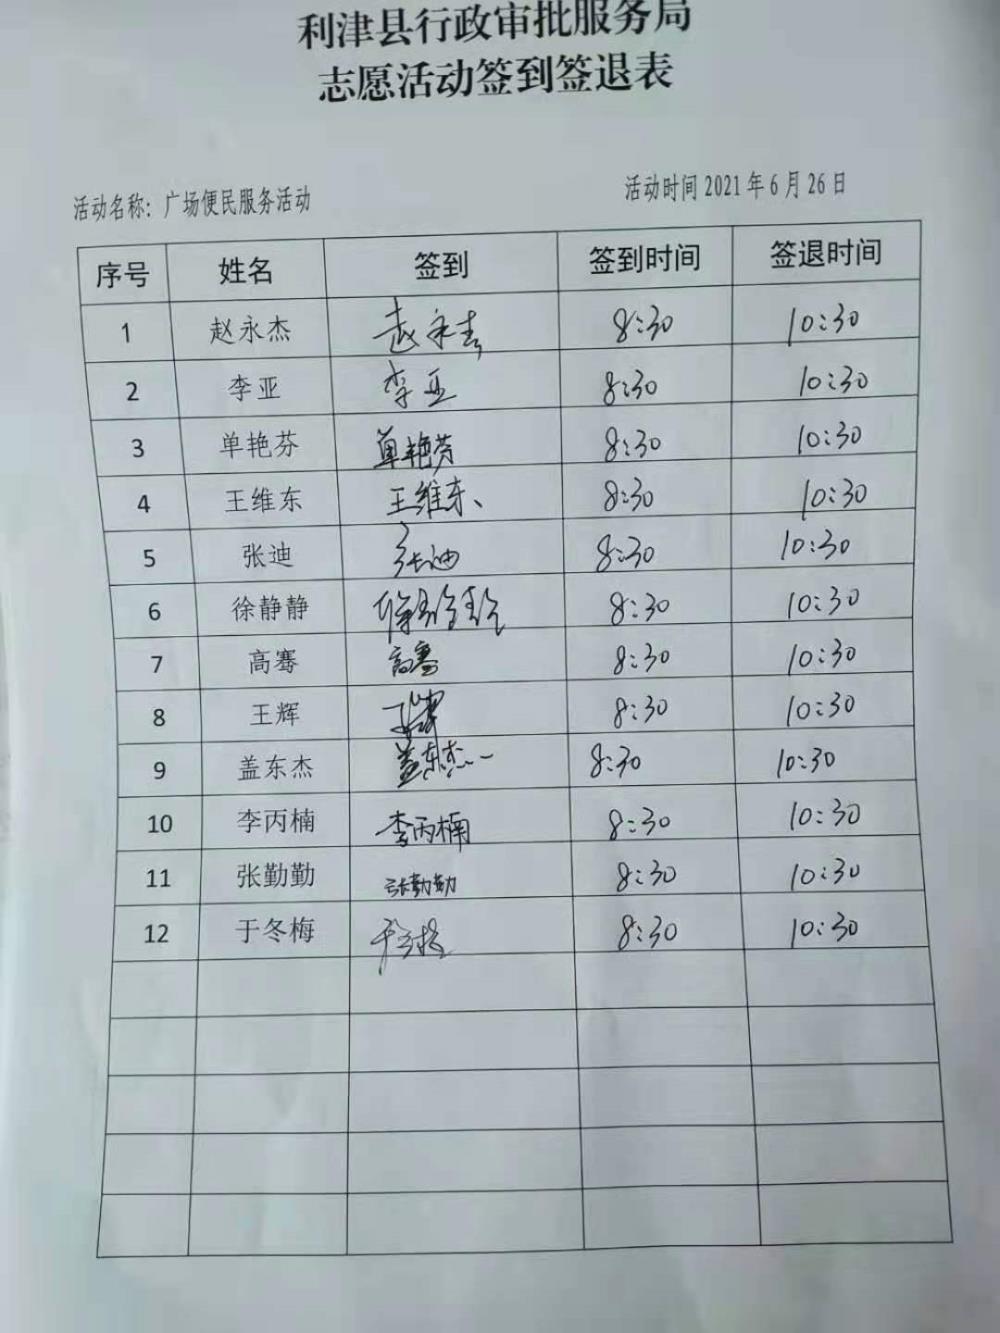 利津县行政审批服务局
志愿活动签到签退表
活动名称：广场便民服务活动 活动时间 2021 年 6 月 26 日
序号 姓名 签到 签到时间 签退时间
1 赵永杰 赵永杰 8:30 10:30
2 李亚 李亚 8:30 10:30
3 单艳芬 单艳芬 8:30 10:30
4 王维东 王维东 8:30 10:30
5 张迪 张迪 8:30 10:30
6 徐静静 徐静静 8:30 10:30
7 高骞 高骞 8:30 10:30
8 王辉 王辉 8:30 10:30
9 盖东杰 盖东杰 8:30 10:30
10 李丙楠 李丙楠 8:30 10:30
11 张勤勤 张勤勤 8:30 10:30
12 于冬梅 于冬梅 8:30 10:30